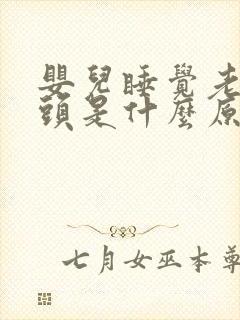 嬰兒睡覺老
頭是什麼原
七月女巫本尊